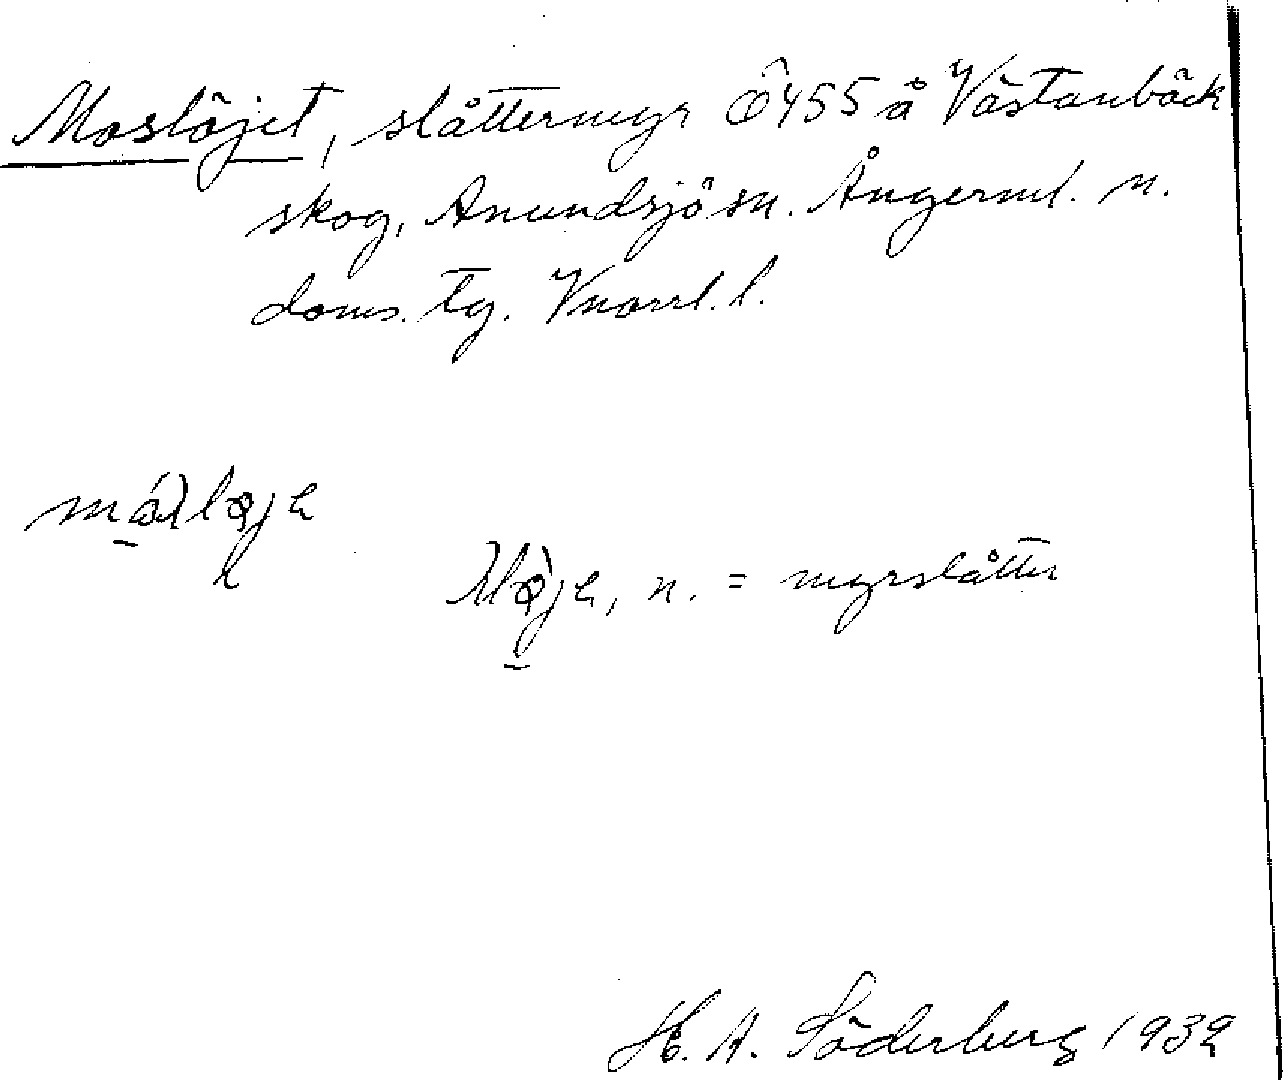 Moslöjet, slåttermyr Ö455 å Västanbäck
skog, Anundsjö sn. Ångerml. n.
doms. tg. Vnorrl. l.
n. = myrslåtter
H. A. Söderberg 1932